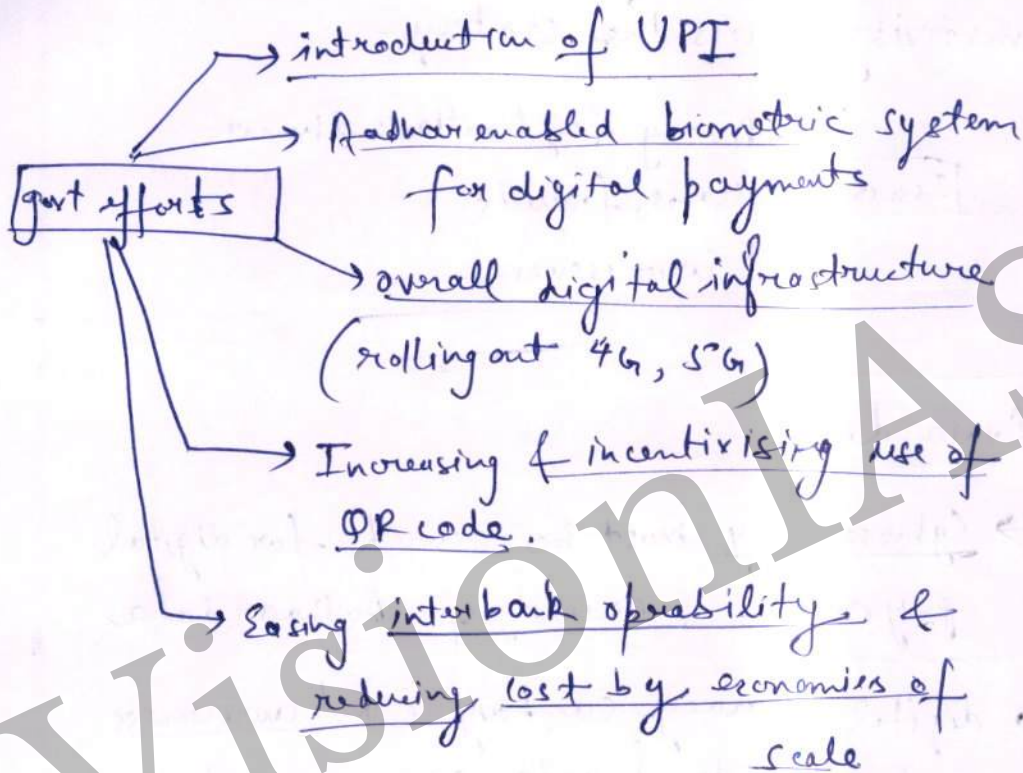 introduction of UPI
Aadhar enabled biometric system
for digital payments
govt efforts
overall digital infrastructure
(rolling out 4G, 5G)
Increasing & incentivising use of
QR code.
Easing interbank operability &
reducing cost by economies of
scale
VisionIAS